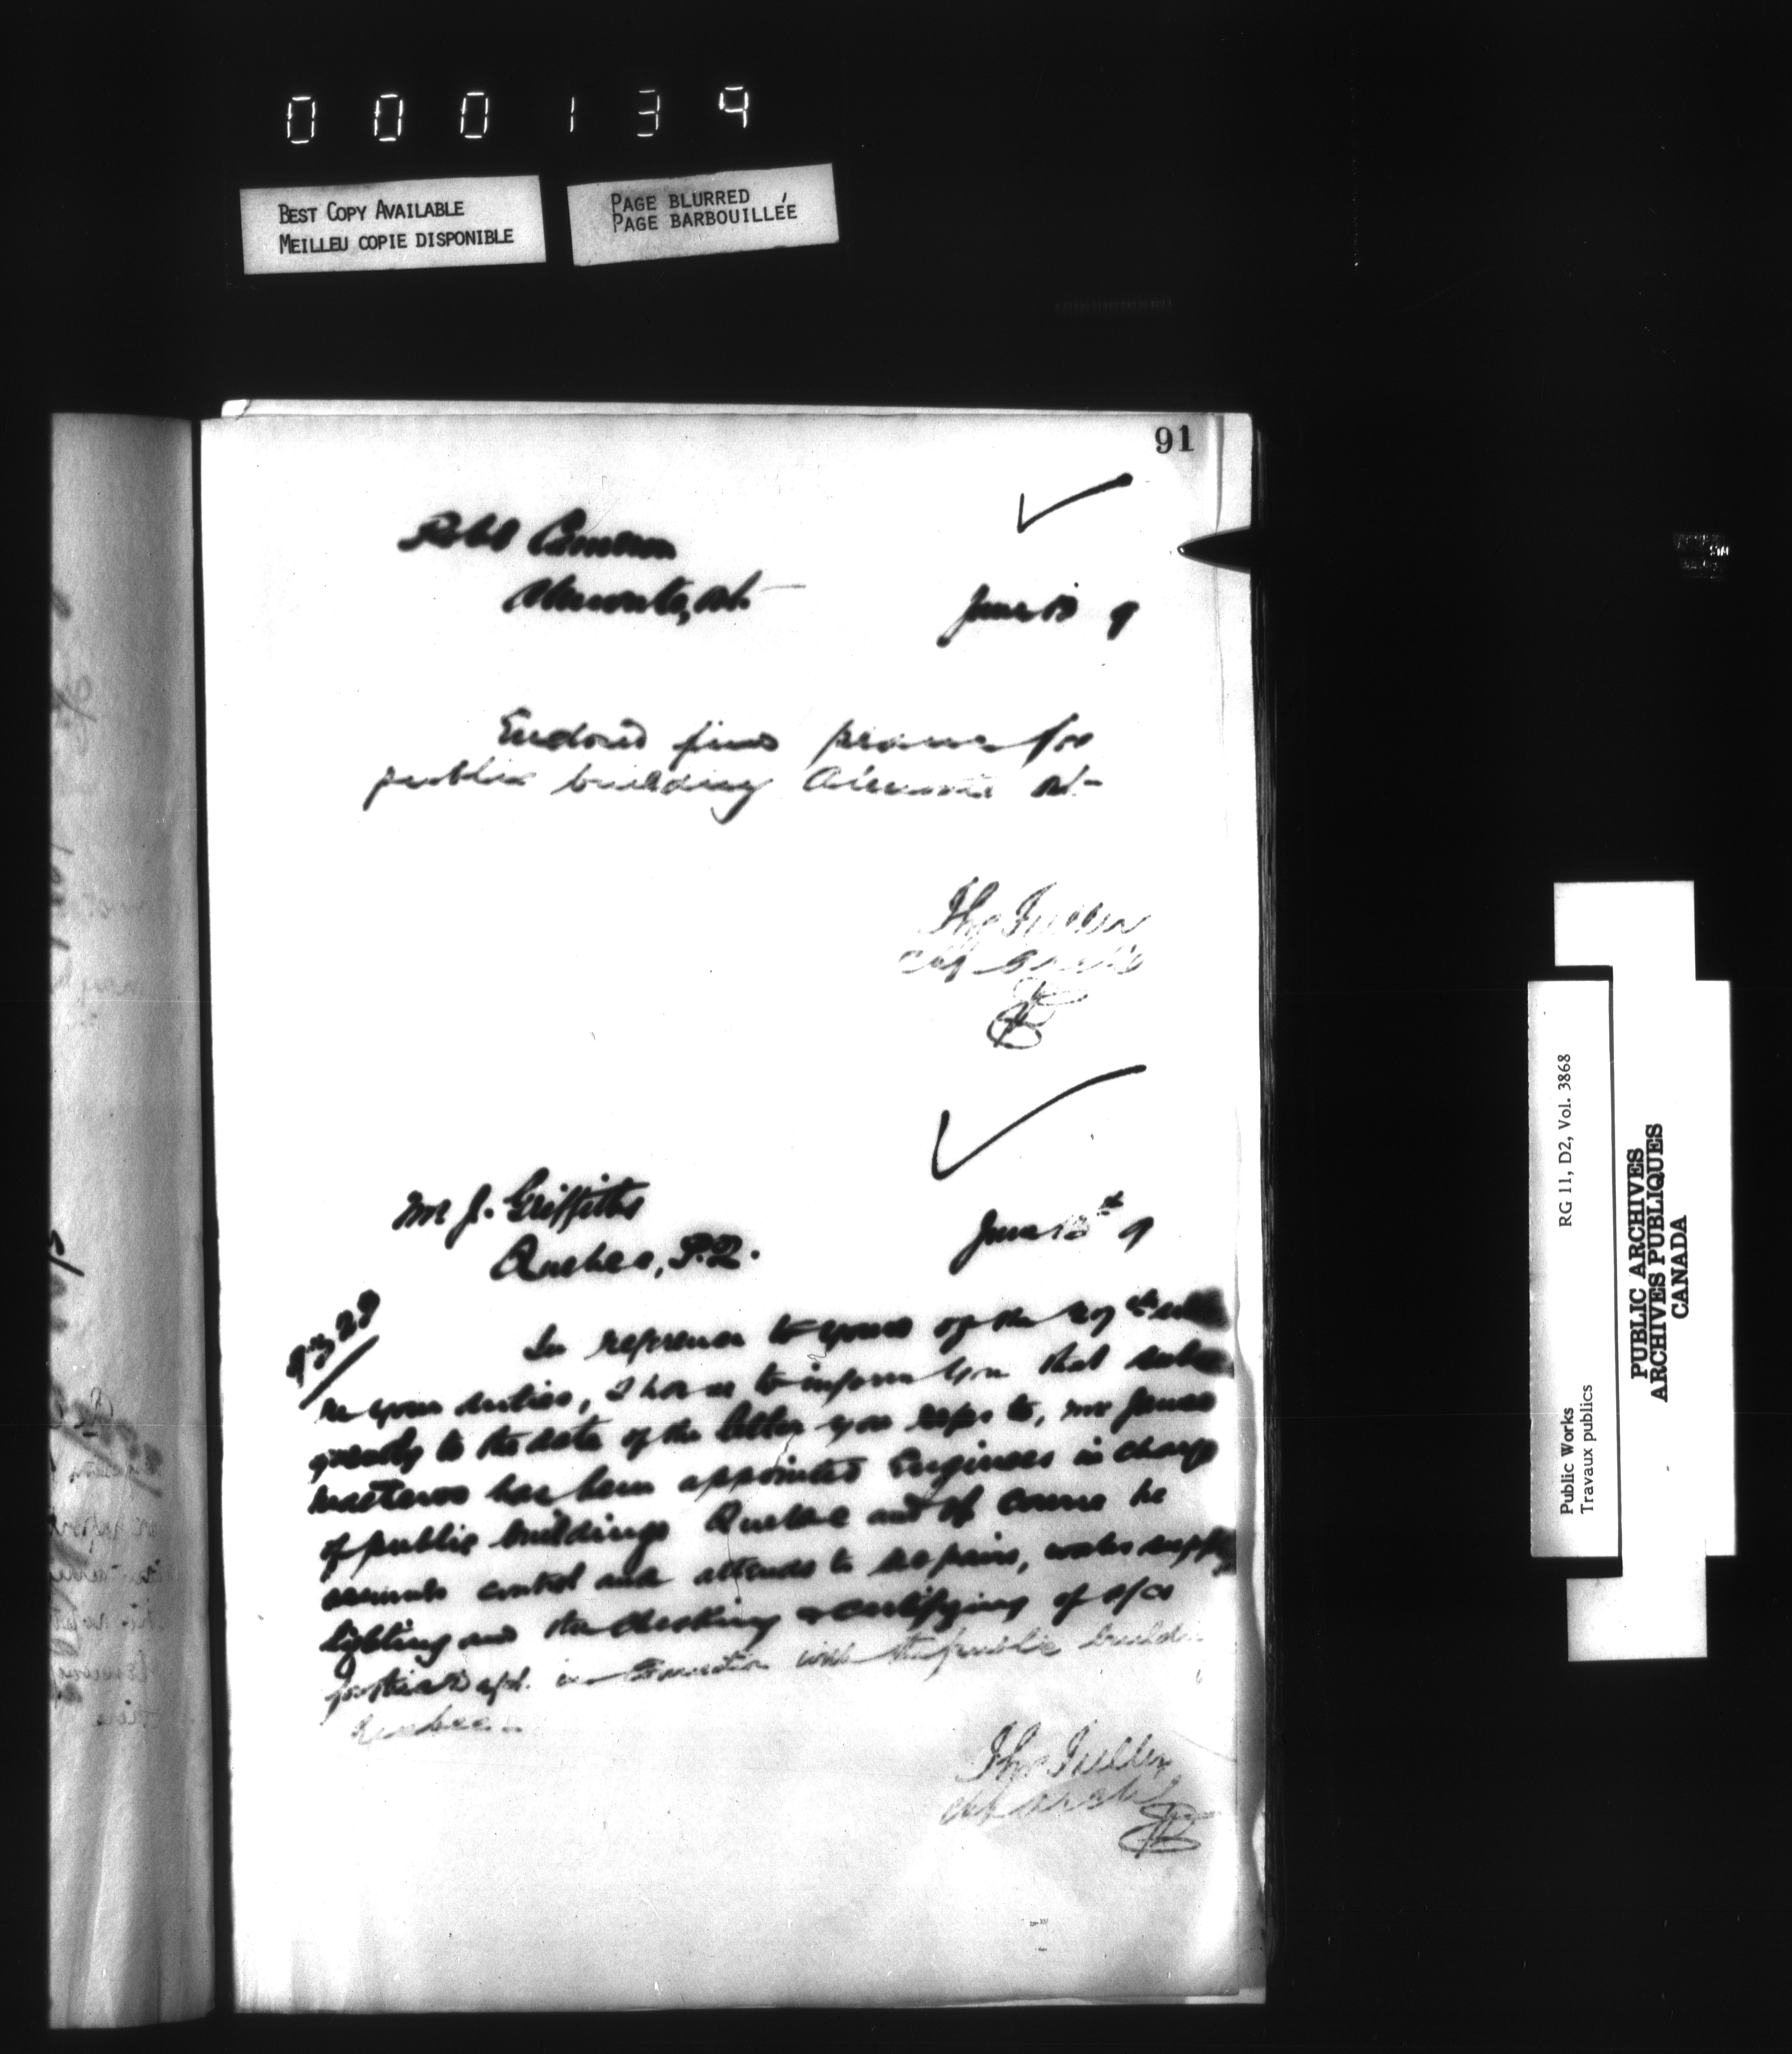 000139
BEST COPY AVAILABLE
MEILLEU COPIE DISPONIBLE
PAGE BLURRED
PAGE BARBOUILLÉE
91
Cameron
June 13 9
Enclosed find for
public building Ont
Thos Fuller
Chf Archt
Mr J. Griffiths
Quebec, P.Q.
June 13th 9
In reference to yours of the 29th
re your duties, I have to inform you that subse
quently to the date of the letter you refer to, Mr James
has been appointed Engineer in charge
of public buildings Quebec and of course he
control and attends to repairs, water supply
lighting and the checking & certifying of a/cs
in connection with the public build
Quebec
Thos Fuller
Chf Archt
Public Works
Travaux publics
RG 11, D2, Vol. 3868
PUBLIC ARCHIVES
ARCHIVES PUBLIQUES
CANADA